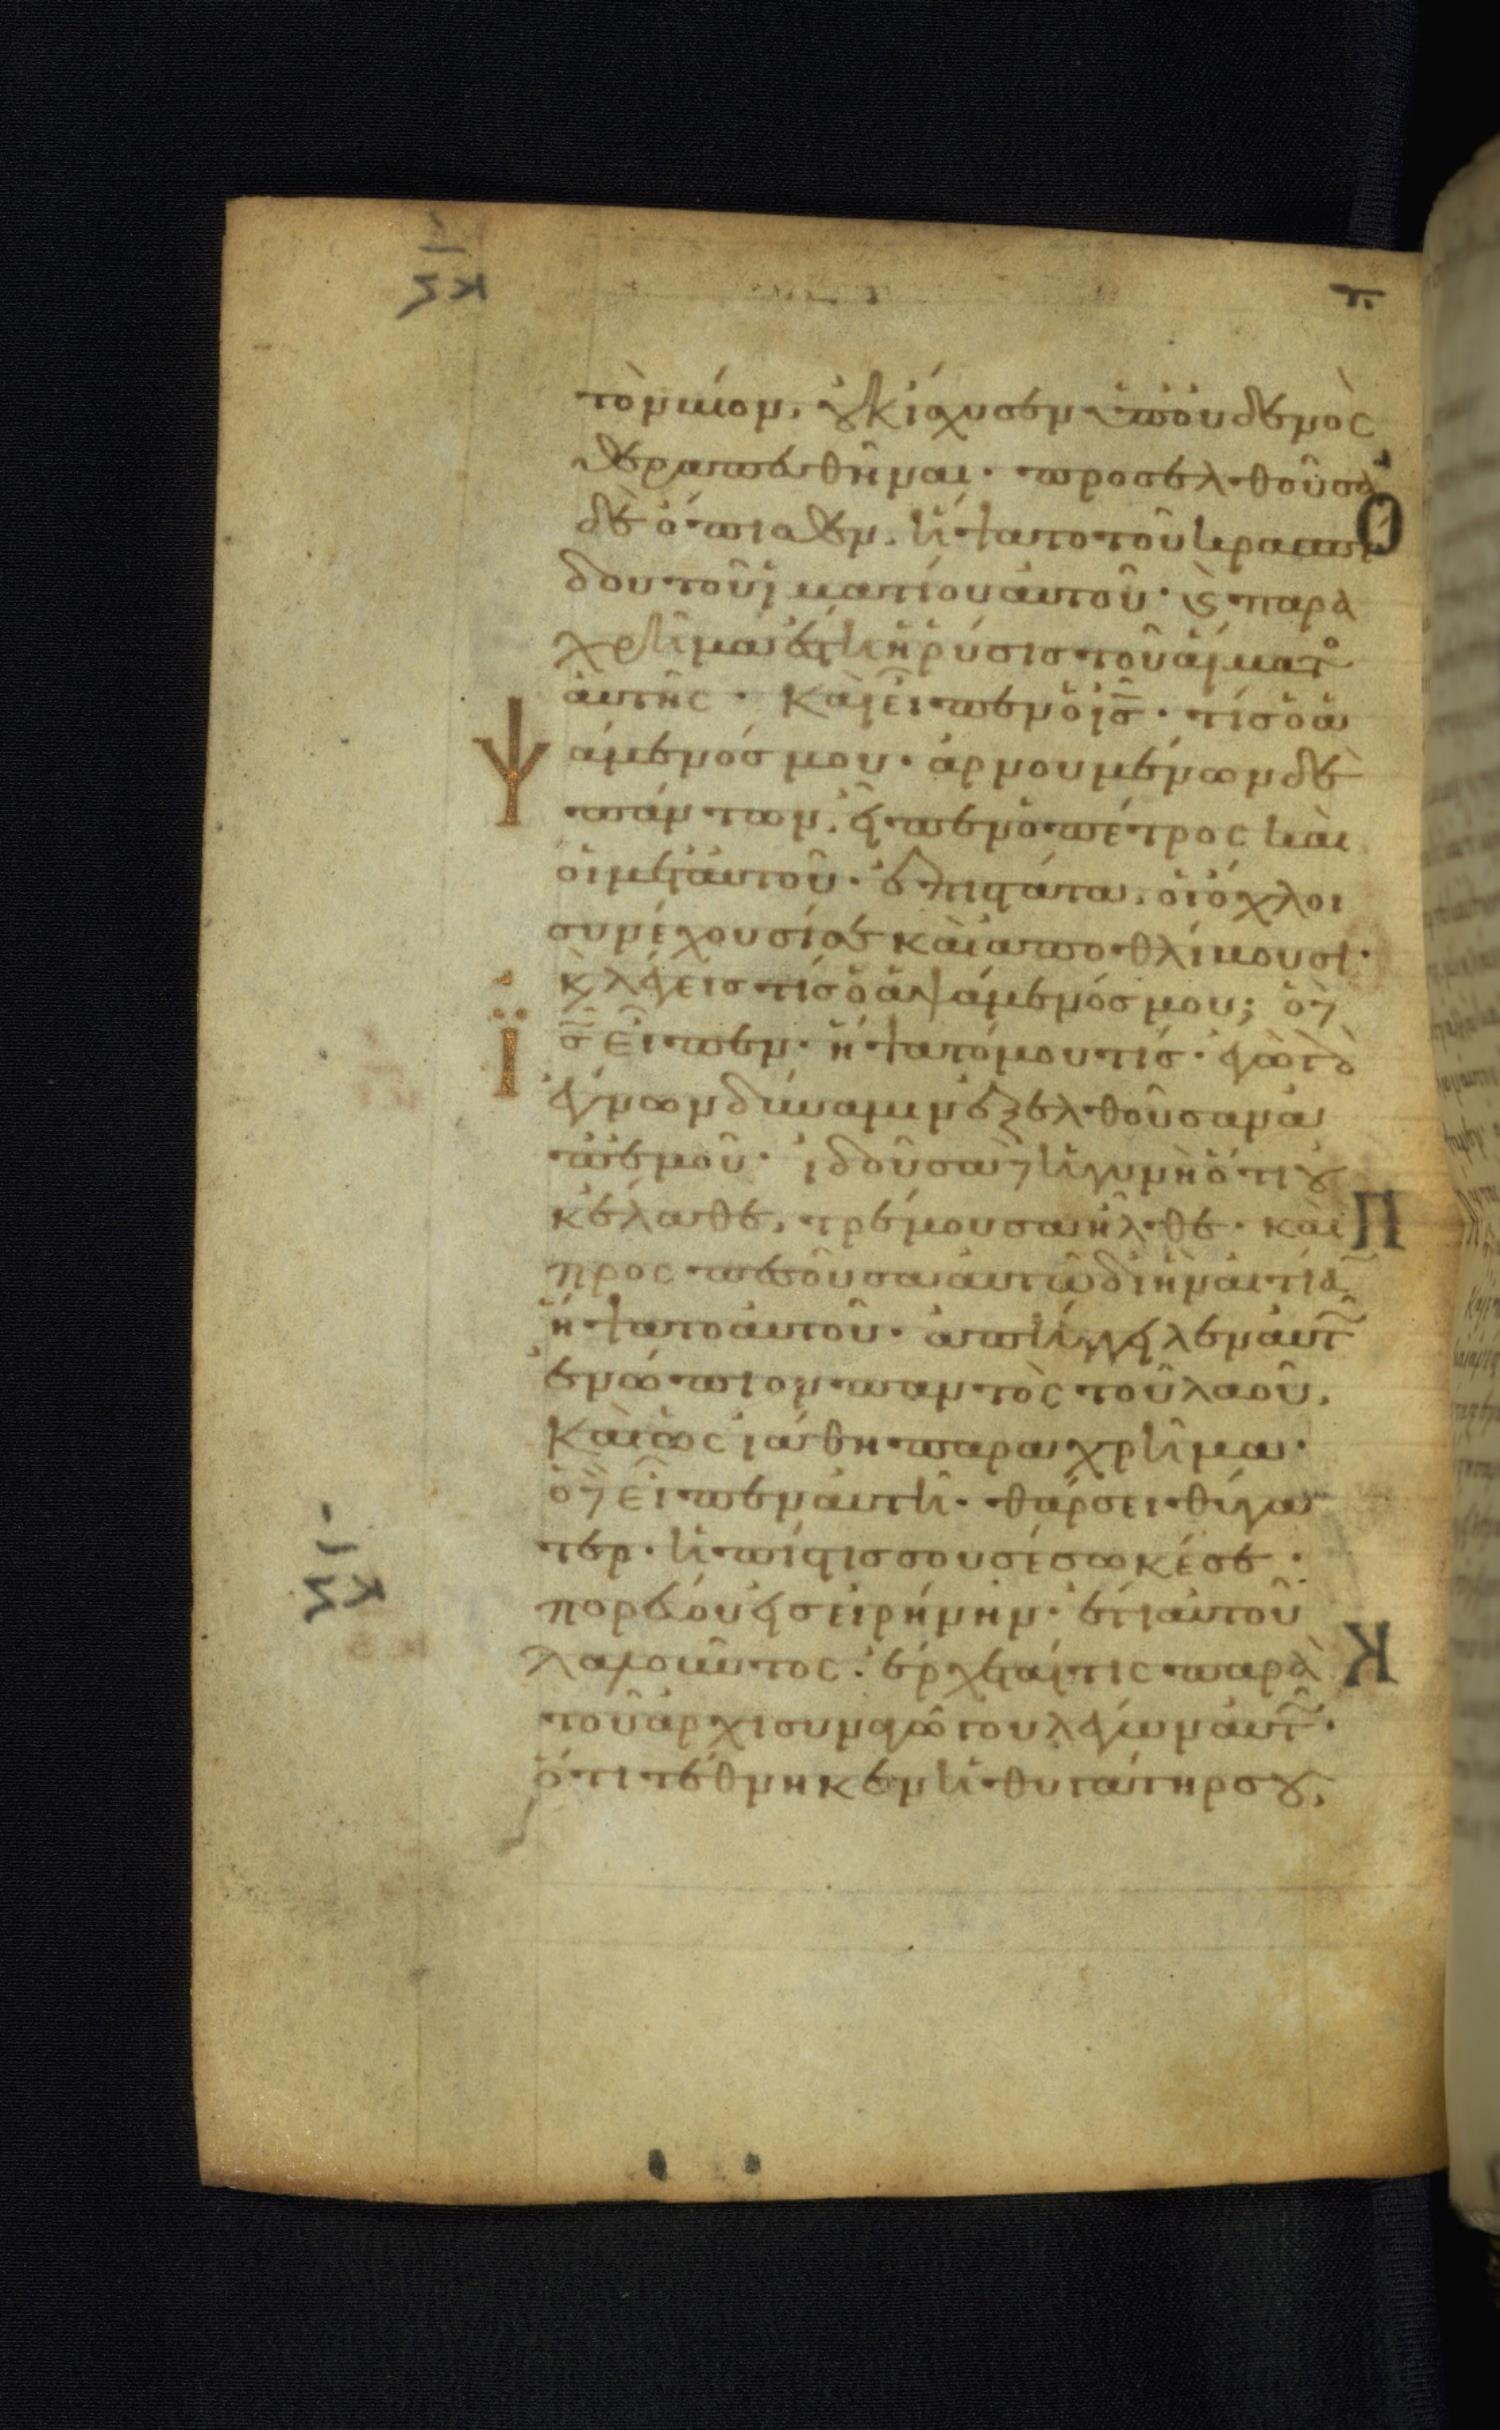 τὸν βίον. οὐκ ἴσχυσεν ὑπ' οὐδενὸς
θεραπευθῆναι· προσελθοῦσα
δὲ ὄπισθεν. ἥψατο τοῦ κρασπέ
δου τοῦ ἱματίου αὐτοῦ· καὶ παρα
χρῆμα ἔστη ἡ ῥύσις τοῦ αἵματος
αὐτῆς· καὶ εἶπεν ὁ ις̅· τίς ὁ ἁ
ψάμενός μου· ἀρνουμένων δὲ
πάντων. εἶπεν ὁ πέτρος καὶ
οἱ μετ' αὐτοῦ· ἐπιστάτα. οἱ ὄχλοι
συνέχουσί σε καὶ ἀποθλίβουσι·
κ λέγεις τίς ὁ ἁψάμενός μου; ὁ δὲ
ϊς̅ εἶπεν· ἥψατό μου τίς· ἐγὼ γὰρ
ἔγνων δύναμιν ἐξελθοῦσαν ἀ
π' ἐμοῦ· ἰδοῦσα δὲ ἡ γυνὴ ὅτι οὐ
κ ἔλαθε, τρέμουσα ἦλθε· καὶ
προσπεσοῦσα αὐτῶ δι' ἣν αἰτίαν
ἥψατο αὐτοῦ· ἀπήγγειλεν αὐτῶ
ἐνώπιον παντὸς τοῦ λαοῦ.
καὶ ὡς ἰάθη παραχρῆμα·
ὁ δὲ εἶπεν αὐτῆ· θάρσει θύγα
τερ· ἡ πίστις σου σέσωκέ σε·
πορεύου εἰς εἰρήνην· ἔτι αὐτοῦ
λαλοῦντος· ἔρχεταί τις παρὰ
τοῦ ἀρχισυναγώγου λέγων αὐτῶ·
ὅτι τέθνηκεν ἡ θυγάτηρ σου.